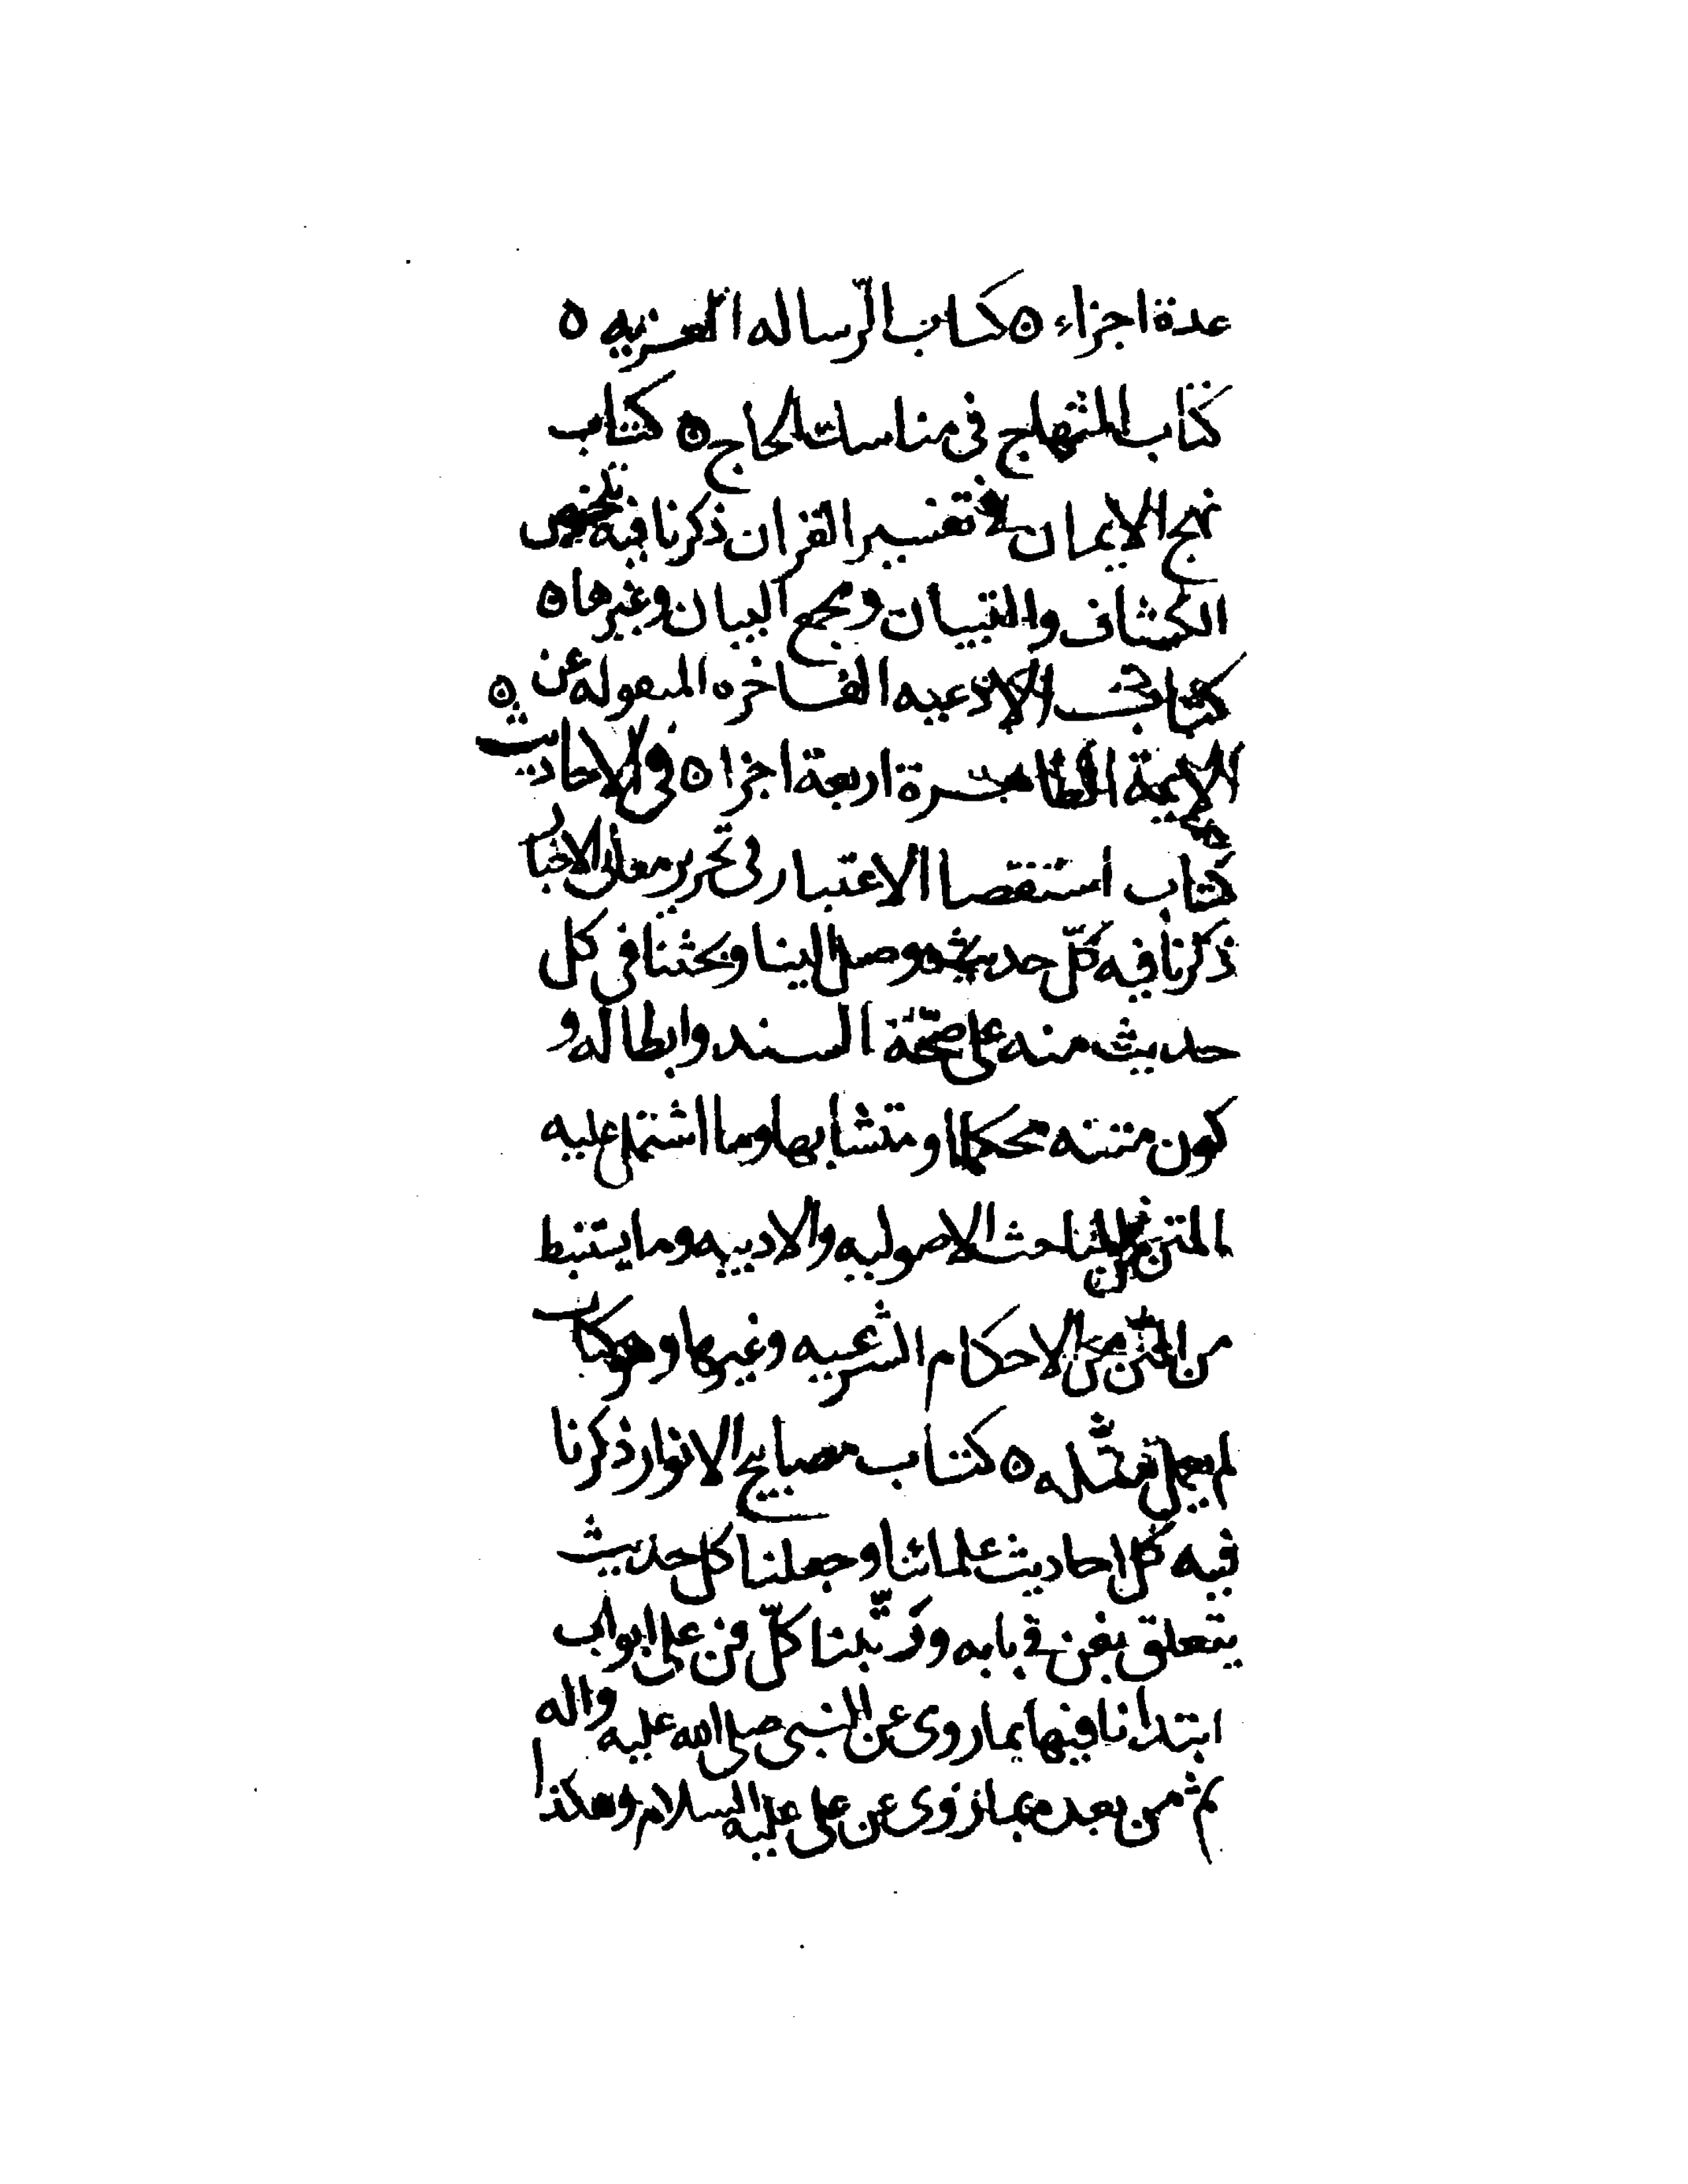 عدة اجزاء ه كتاب الرساله العزيه ه
كتاب المنهاج في مناسك الحاج ه كتاب
نهج الايمان في تفسير القران ذكرنا فيه تلخيص
الكشاف والتبيان ومجمع البيان وغيرها ه
كتاب في الادعيه الفاخره المنقوله عن ه
الايمة الطاهرة اربعة اجزا ه في الاحاديث
كتاب استقصا الاعتبار في تحرير معاني الاخبار
ذكرنا فيه كلّ حديث وصل الينا وبحثنا في كل
حديث منه على صحّة السند وابطاله و
كون متنه محكما او متشابها وما اشتمل عليه
المتن من المباحث الاصوليه والادبيه وما يستنبط
من المتن من الاحكام الشرعيه وغيرها وهو كتاب
لم يعمل مثله ه كتاب مصابيح الانوار ذكرنا
فيه كل احاديث علمائنا وجعلنا كل حديث
يتعلق بفن في بابه ورتّبنا كلّ فن على ابواب
ابتدانا فيها بما روى عن النبى صلى الله عليه واله
ثم من بعده بما روى عن على عليه السلام وهكذا